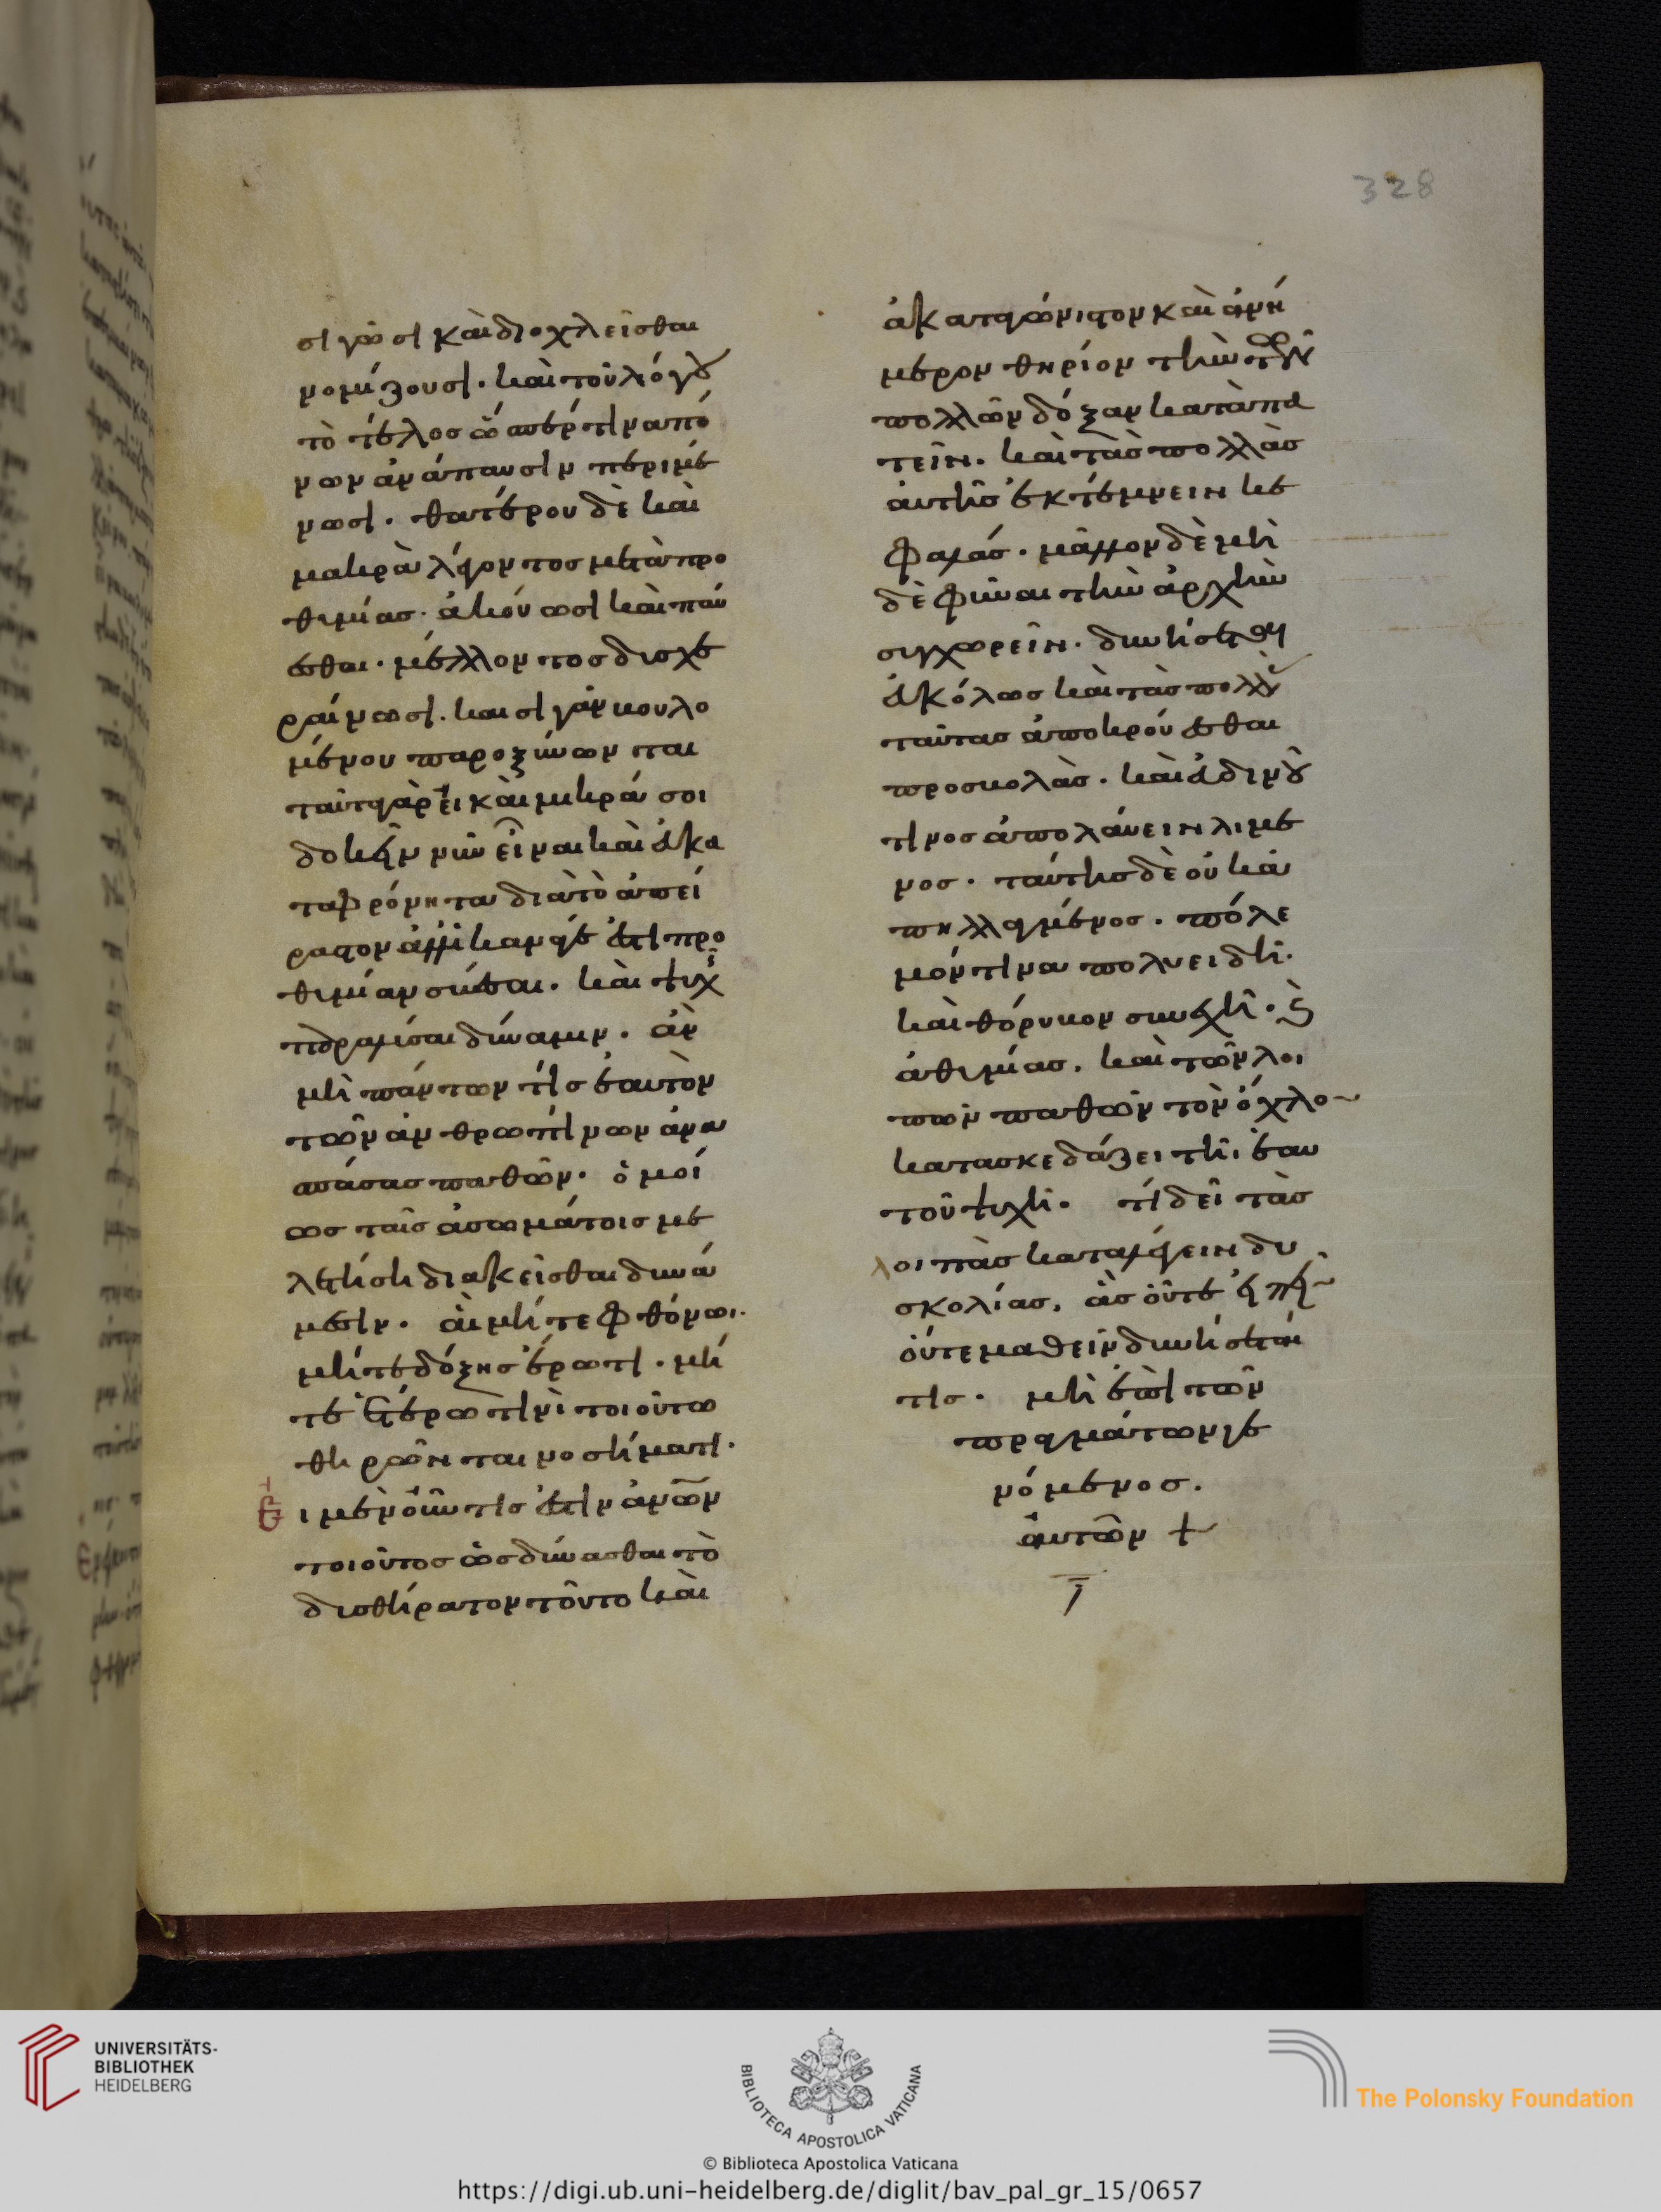 σιγῶσι καὶ διοχλεῖσθαι
νομίζουσι· καὶ τοῦ λόγου
τὸ τέλος ὥσπερ τινα πό
νων ἀνάπαυσιν περιμέ
νωσι· θατέρου δὲ καὶ
μακρὰ λέγοντος μετὰ προ
θυμίας· ἀκούωσι καὶ παύ
εσθαι· μέλλοντος δυσχε
ραίνωσι· και σιγᾶν βουλο
μένου παροξύνωνται
ταῦτα γὰρ εἰ καὶ μικρά σοι
δοκεῖν νῦν εἶναι καὶ εὐκα
ταφρόνητα διὰ τὸ ἀπεί
ραστον ἀλλ' ἱκανά γέ ἐστι προ
θυμίαν σβέσαι· καὶ ψυχῆς
δύναμιν· ἂν
μὴ πάντων τίς ἑαυτὸν
τῶν ἀνθρωπίνων ἀνα
σπάσας παθῶν· ὁμοί
ως ταῖς ἀσωμάτοις με
λετήσῃ διακεῖσθαι δυνά
μεσιν· αἳ μήτε φθόνωι·
μήτε δόξης ἔρωτι· μή
τε ἑτέρω τινὶ τοιούτω
θηρῶνται νοσήματι·
Ει μὲν οὖν τις ἐστιν ἀνων
τοιοῦτος ὡς δύνασθαι τὸ
δυσθήρατον τοῦτο καὶ
ἀκαταγώνιστον καὶ ἀνή
μερον θηρίον τὴν τῶν
πολλῶν δόξαν καταπα
τεῖν· καὶ τὰς πολλὰς
αὐτῆς ἐκτέμνειν κε
φαλάς· μᾶλλον δὲ μὴ
δὲ φῦναι τὴν ἀρχὴν
συγχωρεῖν· δυνήσεται
εὐκόλως καὶ τὰς πολλὰς
ταύτας ἀποκρούεσθαι
προσβολὰς· καὶ εὐδινοῦ
τινος ἀπολάυειν λιμέ
νος· ταύτης δὲ οὐκ ἀ
πηλλαγμένος· πόλε
μόν τινα πολυειδῆ·
καὶ θόρυβον συνεχῆ· καὶ
ἀθυμίας· καὶ τῶν λοι
πῶν παθῶν τὸν ὄχλον
κατασκεδάζει τῆι ἑαυ
τοῦ ψυχῆ· τί δεῖ τὰς
λοιπὰς καταλέγειν δυ
σκολίας, ἃς οὔτε εἰπεῖν
οὔτε μαθεῖν δυνήσεταί
τις· μὴ ἐπὶ τῶν
πραγμάτων γε
νόμενος·
αὐτῶν +
328
UNIVERSITÄTS-
BIBLIOTHEK
HEIDELBERG
BIBLIOTECA APOSTOLICA VATICANA
The Polonsky Foundation
© Biblioteca Apostolica Vaticana
https://digi.ub.uni-heidelberg.de/diglit/bav_pal_gr_15/0657